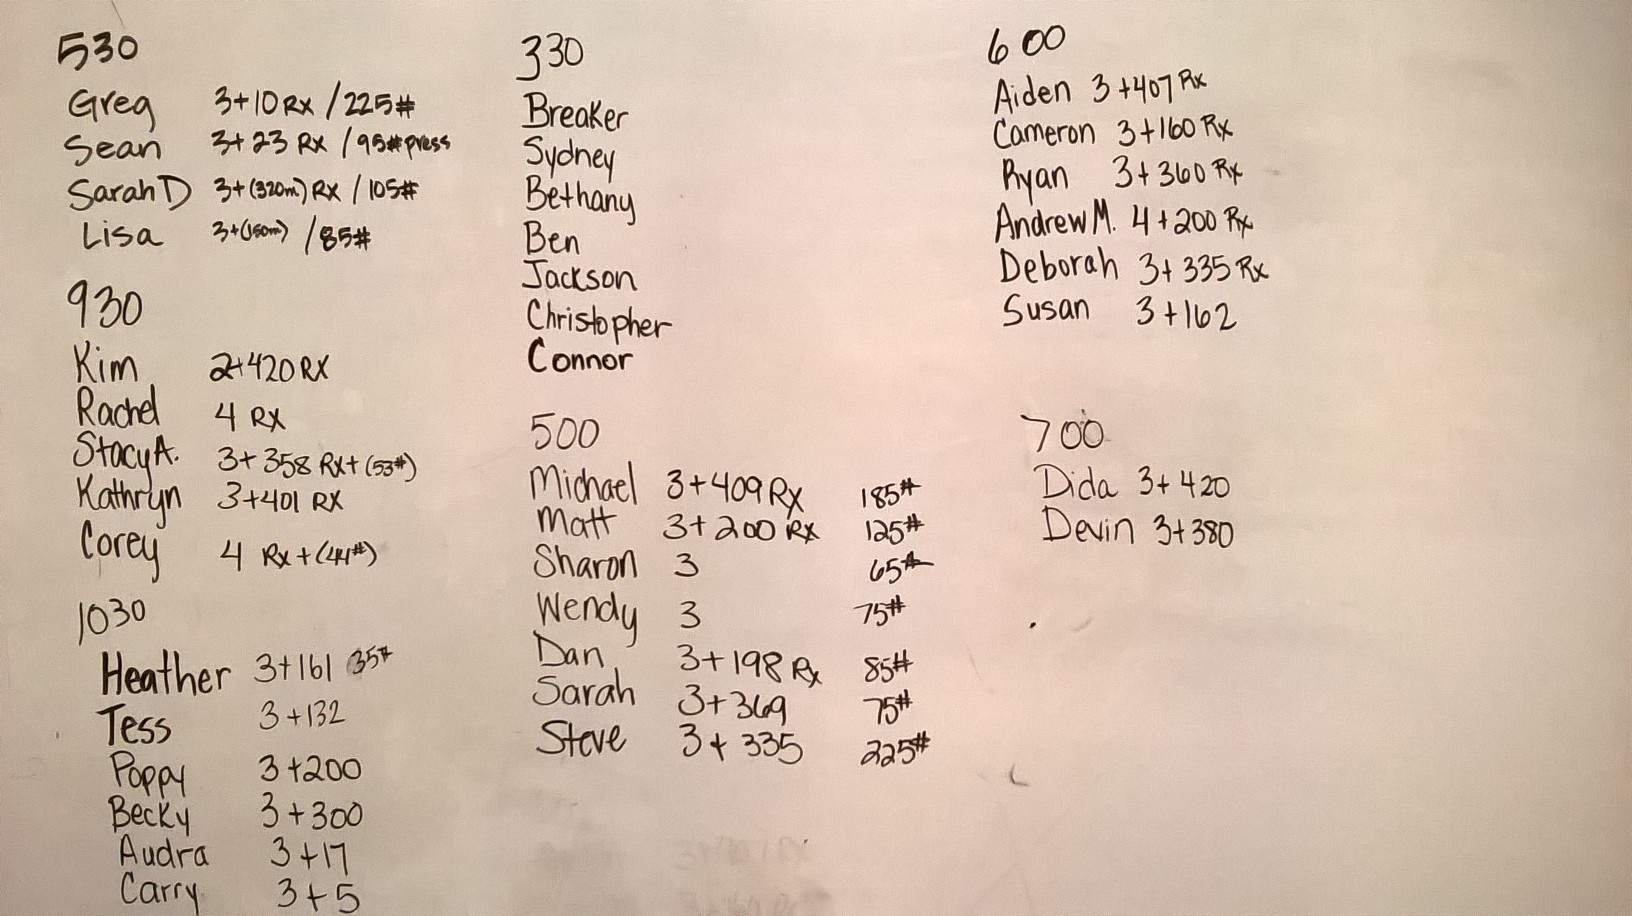 530
Greg 3+10 Rx /225#
Sean 3+23 Rx /95# press
Sarah D 3+(320m) Rx /105#
Lisa 3+(150m) /85#
930
Kim 2+420 RX
Rachel 4 RX
Stacy A. 3+358 Rx+(53#)
Kathryn 3+401 RX
Corey 4 Rx+(44#)
1030
Heather 3+161 35#
Tess 3+132
Poppy 3+200
Becky 3+300
Audra 3+17
Carry 3+5
330
Breaker
Sydney
Bethany
Ben
Jackson
Christopher
Connor
500
Michael 3+409 Rx 185#
Matt 3+200 Rx 125#
Sharon 3 65#
Wendy 3 75#
Dan 3+198 Rx 85#
Sarah 3+369 75#
Steve 3+335 225#
600
Aiden 3+407 Rx
Cameron 3+160 Rx
Ryan 3+360 Rx
Andrew M. 4+200 Rx
Deborah 3+335 Rx
Susan 3+162
700
Dida 3+420
Devin 3+380